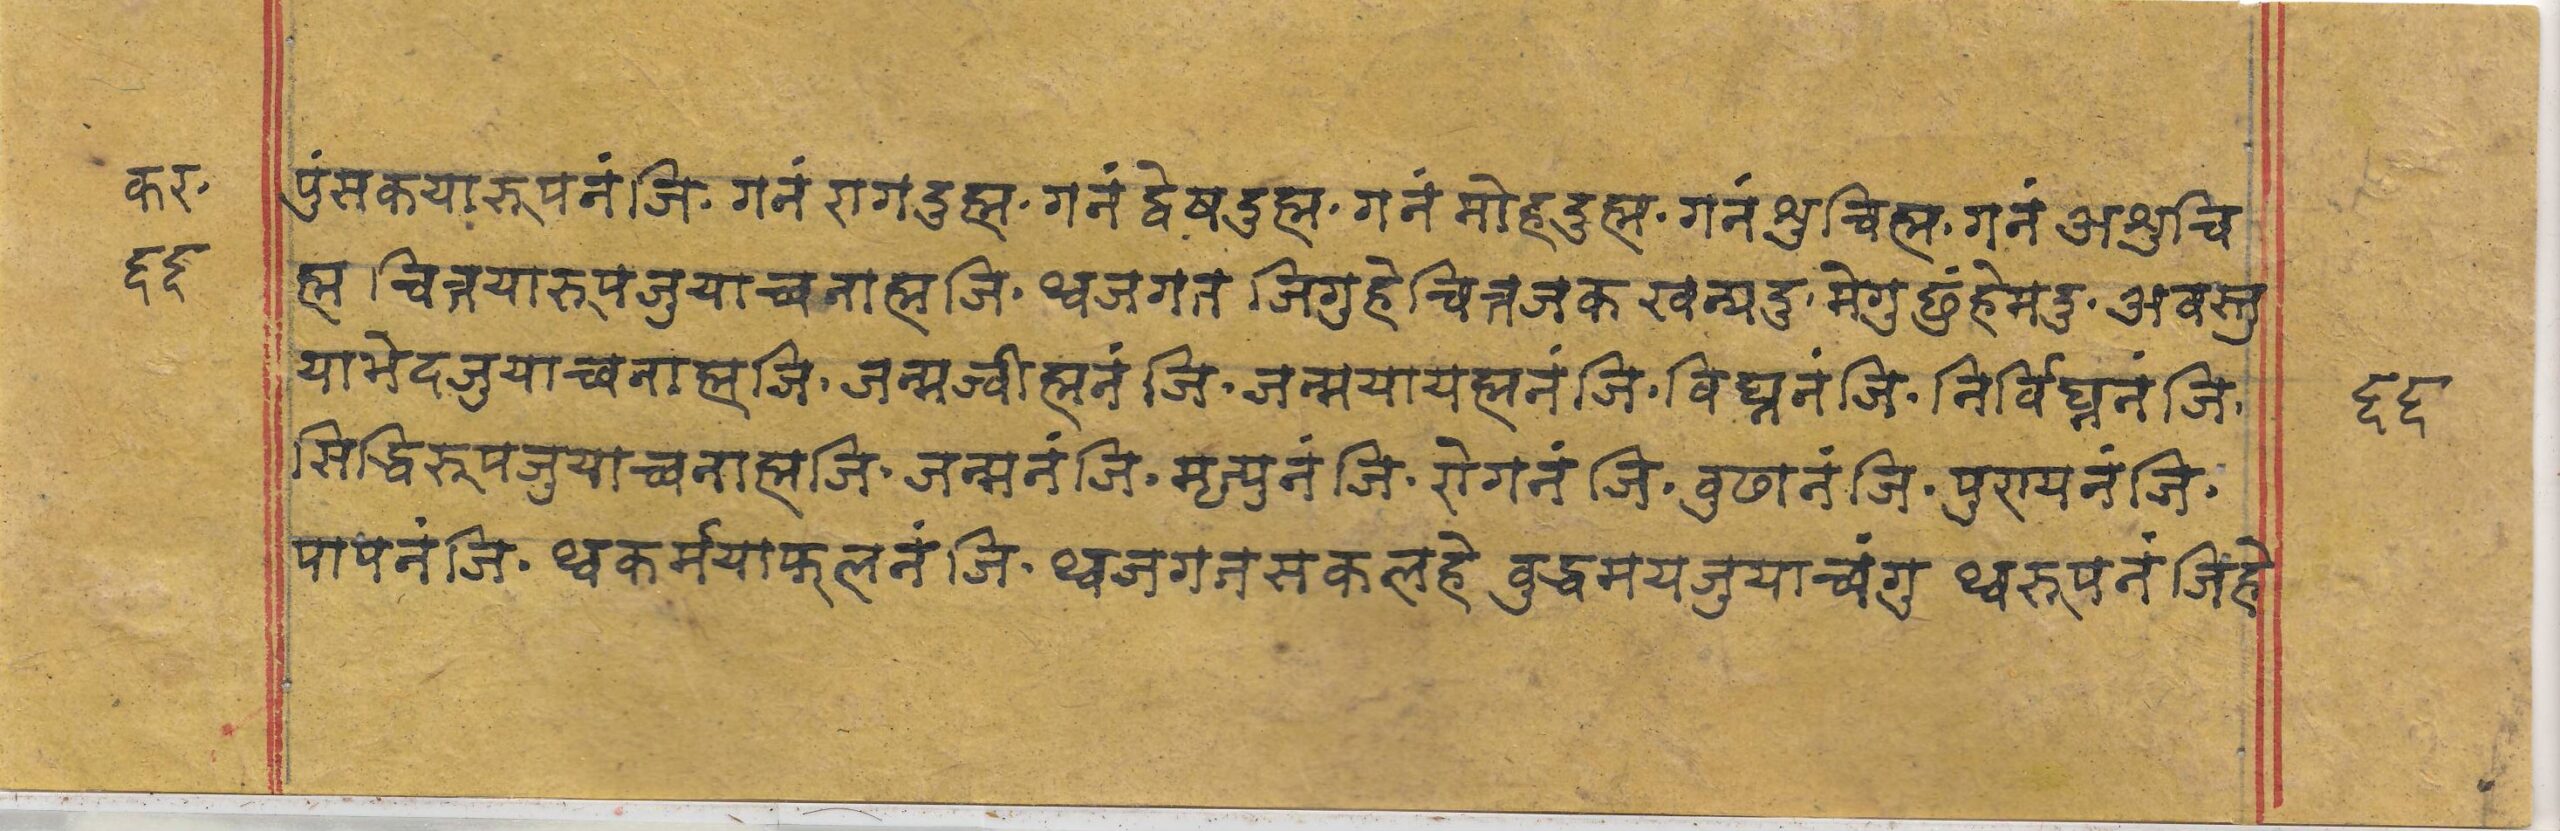 कर.
६६
पुंसकया रूपनंजि. गनं रागदुह्म. गनं द्वेषदुह्म. गनं मोहदुह्म. गनं शुचिह्म. गनं अशुचि
ह्म चित्तयारूपजुयाच्वनाह्मजि. थ्वजगत जिगुहे चित्तजक खन्यदु. मेगु छुं हेमदु. अवस्तु
याभेदजुयाच्वनाह्मजि. जन्मज्वीह्मनं जि. जन्मयायह्मनं जि. विघ्ननं जि. निर्विघ्ननं जि.
सिद्धिरूपजुयाच्वनाह्मजि. जन्मनं जि. मृत्युनं जि. रोगनं जि. वुढानं जि. पुरायनं जि.
पापनं जि. थ्वकर्मयाफलनं जि. थ्वजगतसकलहे वुद्धमयजुयाच्वंगु थ्वरूपनं जिंहे
६६